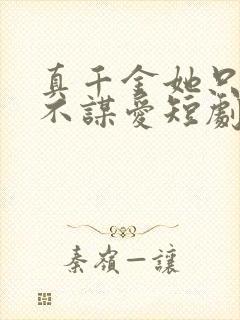 真千金她只
不謀愛短劇
秦嶺一讓